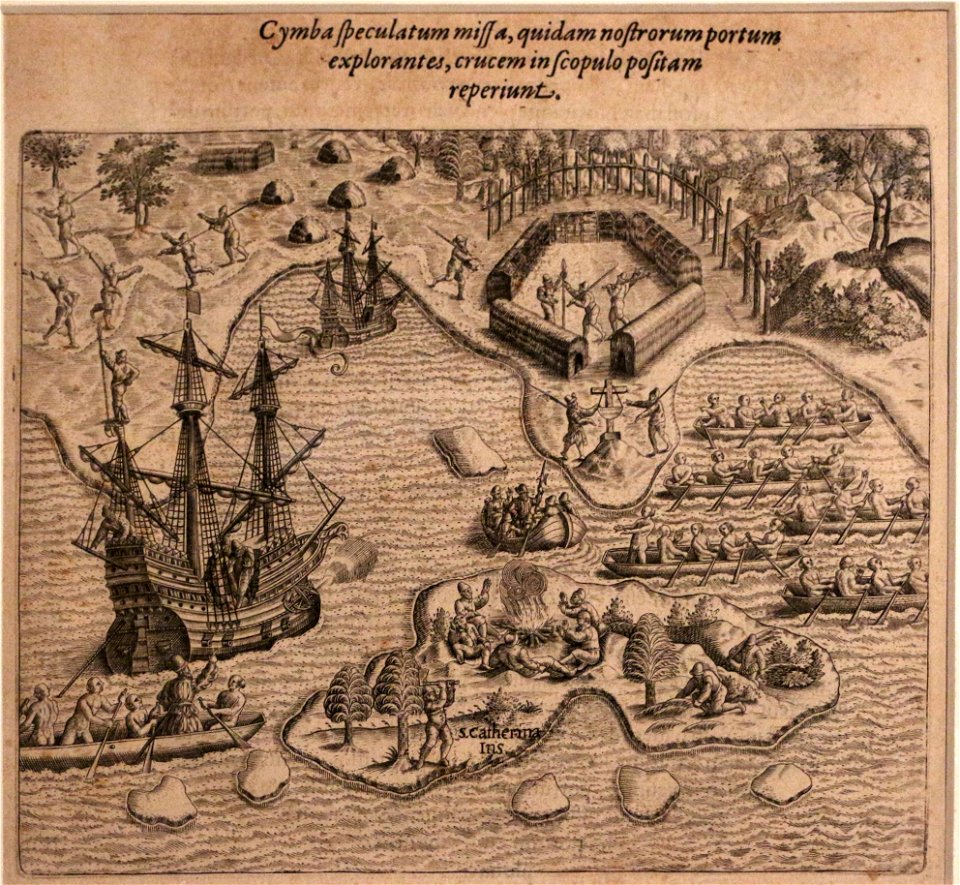 Cymba ſpeculatum miſſa, quidam noſtrorum portum
explorantes, crucem in ſcopulo poſitam
reperiunt.
S. Catherina
Ins.